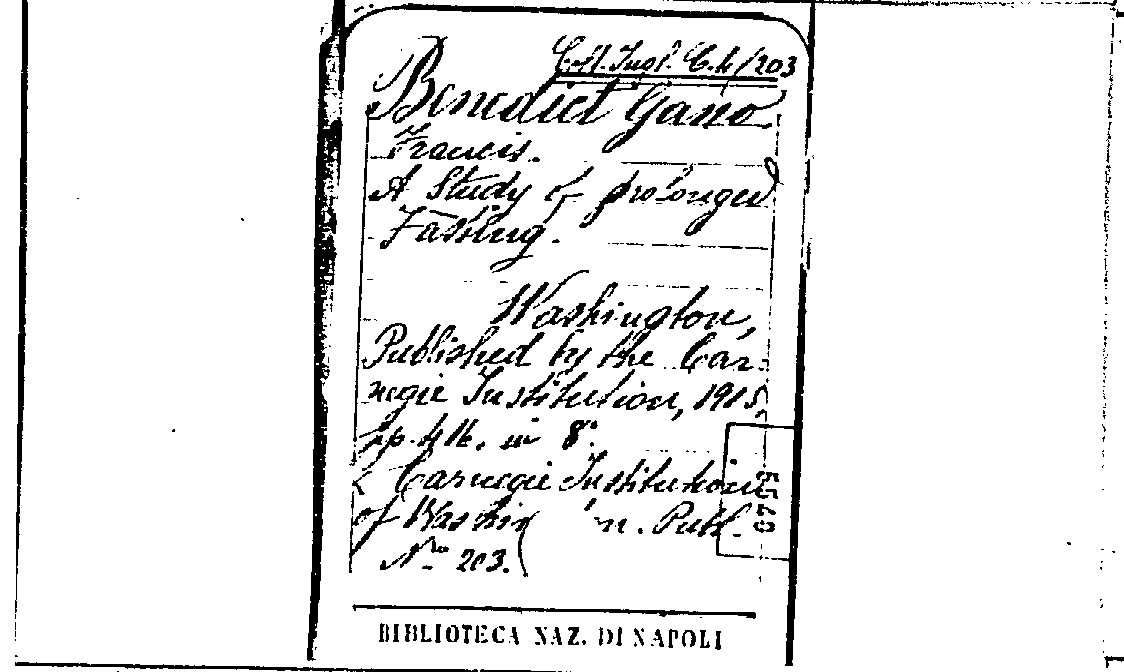 Coll. Ingl. C. 4/203
Benedict Gano
Francis.
A Study of prolonged
Fasting.
Washington,
Published by the Car-
negie Institution, 1915,
pp. 416. in 8°.
Carnegie Institution
of Washin on. Publ.
No 203.
BIBLIOTECA NAZ. DI NAPOLI